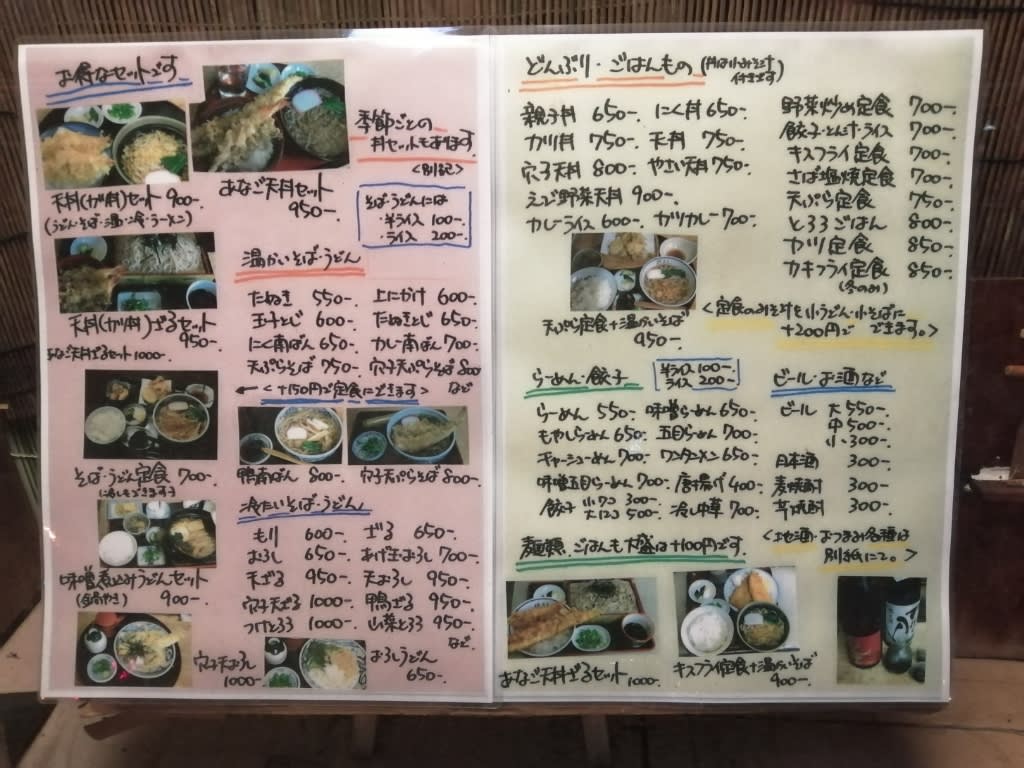 お得なセットです
天丼(カツ丼)セット 900-.
(うどん・そば・温・冷・ラーメン)
あなご天丼セット
950-.
季節ごとの
丼セットもあります
<別記>
そば・うどんには
・半ライス 100-.
・ライス 200-.
天丼(カツ丼)ざるセット
950-.
あなご天丼ざるセット 1000-.
そば・うどん定食 700-.
味噌煮込みうどんセット
900-.
穴子天おろし
1000-.
温かいそば・うどん
たぬき 550-. 上にかけ 600-.
玉子とじ 600-. たぬきとじ 650-.
にく南ばん 650-. カレー南ばん 700-.
天ぷらそば 750-. 穴子天ぷらそば 800
など
← <+150円で定食にできます>
鴨南ばん 800-. 穴子天ぷらそば 800-.
冷たいそば・うどん
もり 600-. ざる 650-.
おろし 650-. あげ玉おろし 700-.
天ざる 950-. 天おろし 950-.
穴子天ざる 1000-. 鴨ざる 950-.
つけとろろ 1000-. 山菜とろろ 950-.
など
おろしうどん
650-.
どんぶり・ごはんもの (丼は小みそ汁
付きです)
親子丼 650-. にく丼 650-.
カツ丼 750-. 天丼 750-.
穴子天丼 800- やさい天丼 750-.
えび野菜天丼 900-.
カレーライス 600-. カツカレー 700-.
天ぷら定食+温かいそば
950-.
野菜炒め定食 700-.
餃子・とん汁・ライス 700-.
キスフライ定食 700-.
さば塩焼定食 700-.
天ぷら定食 750-.
とろろごはん 800-.
カツ定食 850-.
カキフライ定食 850-.
(冬のみ)
<定食のみそ汁を小うどん・小そばに
+200円で できます。>
らーめん・餃子
半ライス 100-.
ライス 200-.
らーめん 550-. 味噌らーめん 650-.
もやしらーめん 650-. 五目らーめん 700-.
チャーシューめん 700- ワンタンメン 650-.
味噌五目らーめん 700-. 唐揚げ 400-.
餃子 小(ワコ) 300-
大(12コ) 500-. 冷し中華 700-.
麺類、ごはんも大盛は+100円です。
ビール・お酒など
ビール 大 550-.
中 500-.
小 300-.
日本酒 300-.
麦焼酎 300-
芋焼酎 300-.
<地酒・おつまみ各種は
別紙にて。>
あなご天丼ざるセット 1000-.
キスフライ定食+温かいそば
900-.